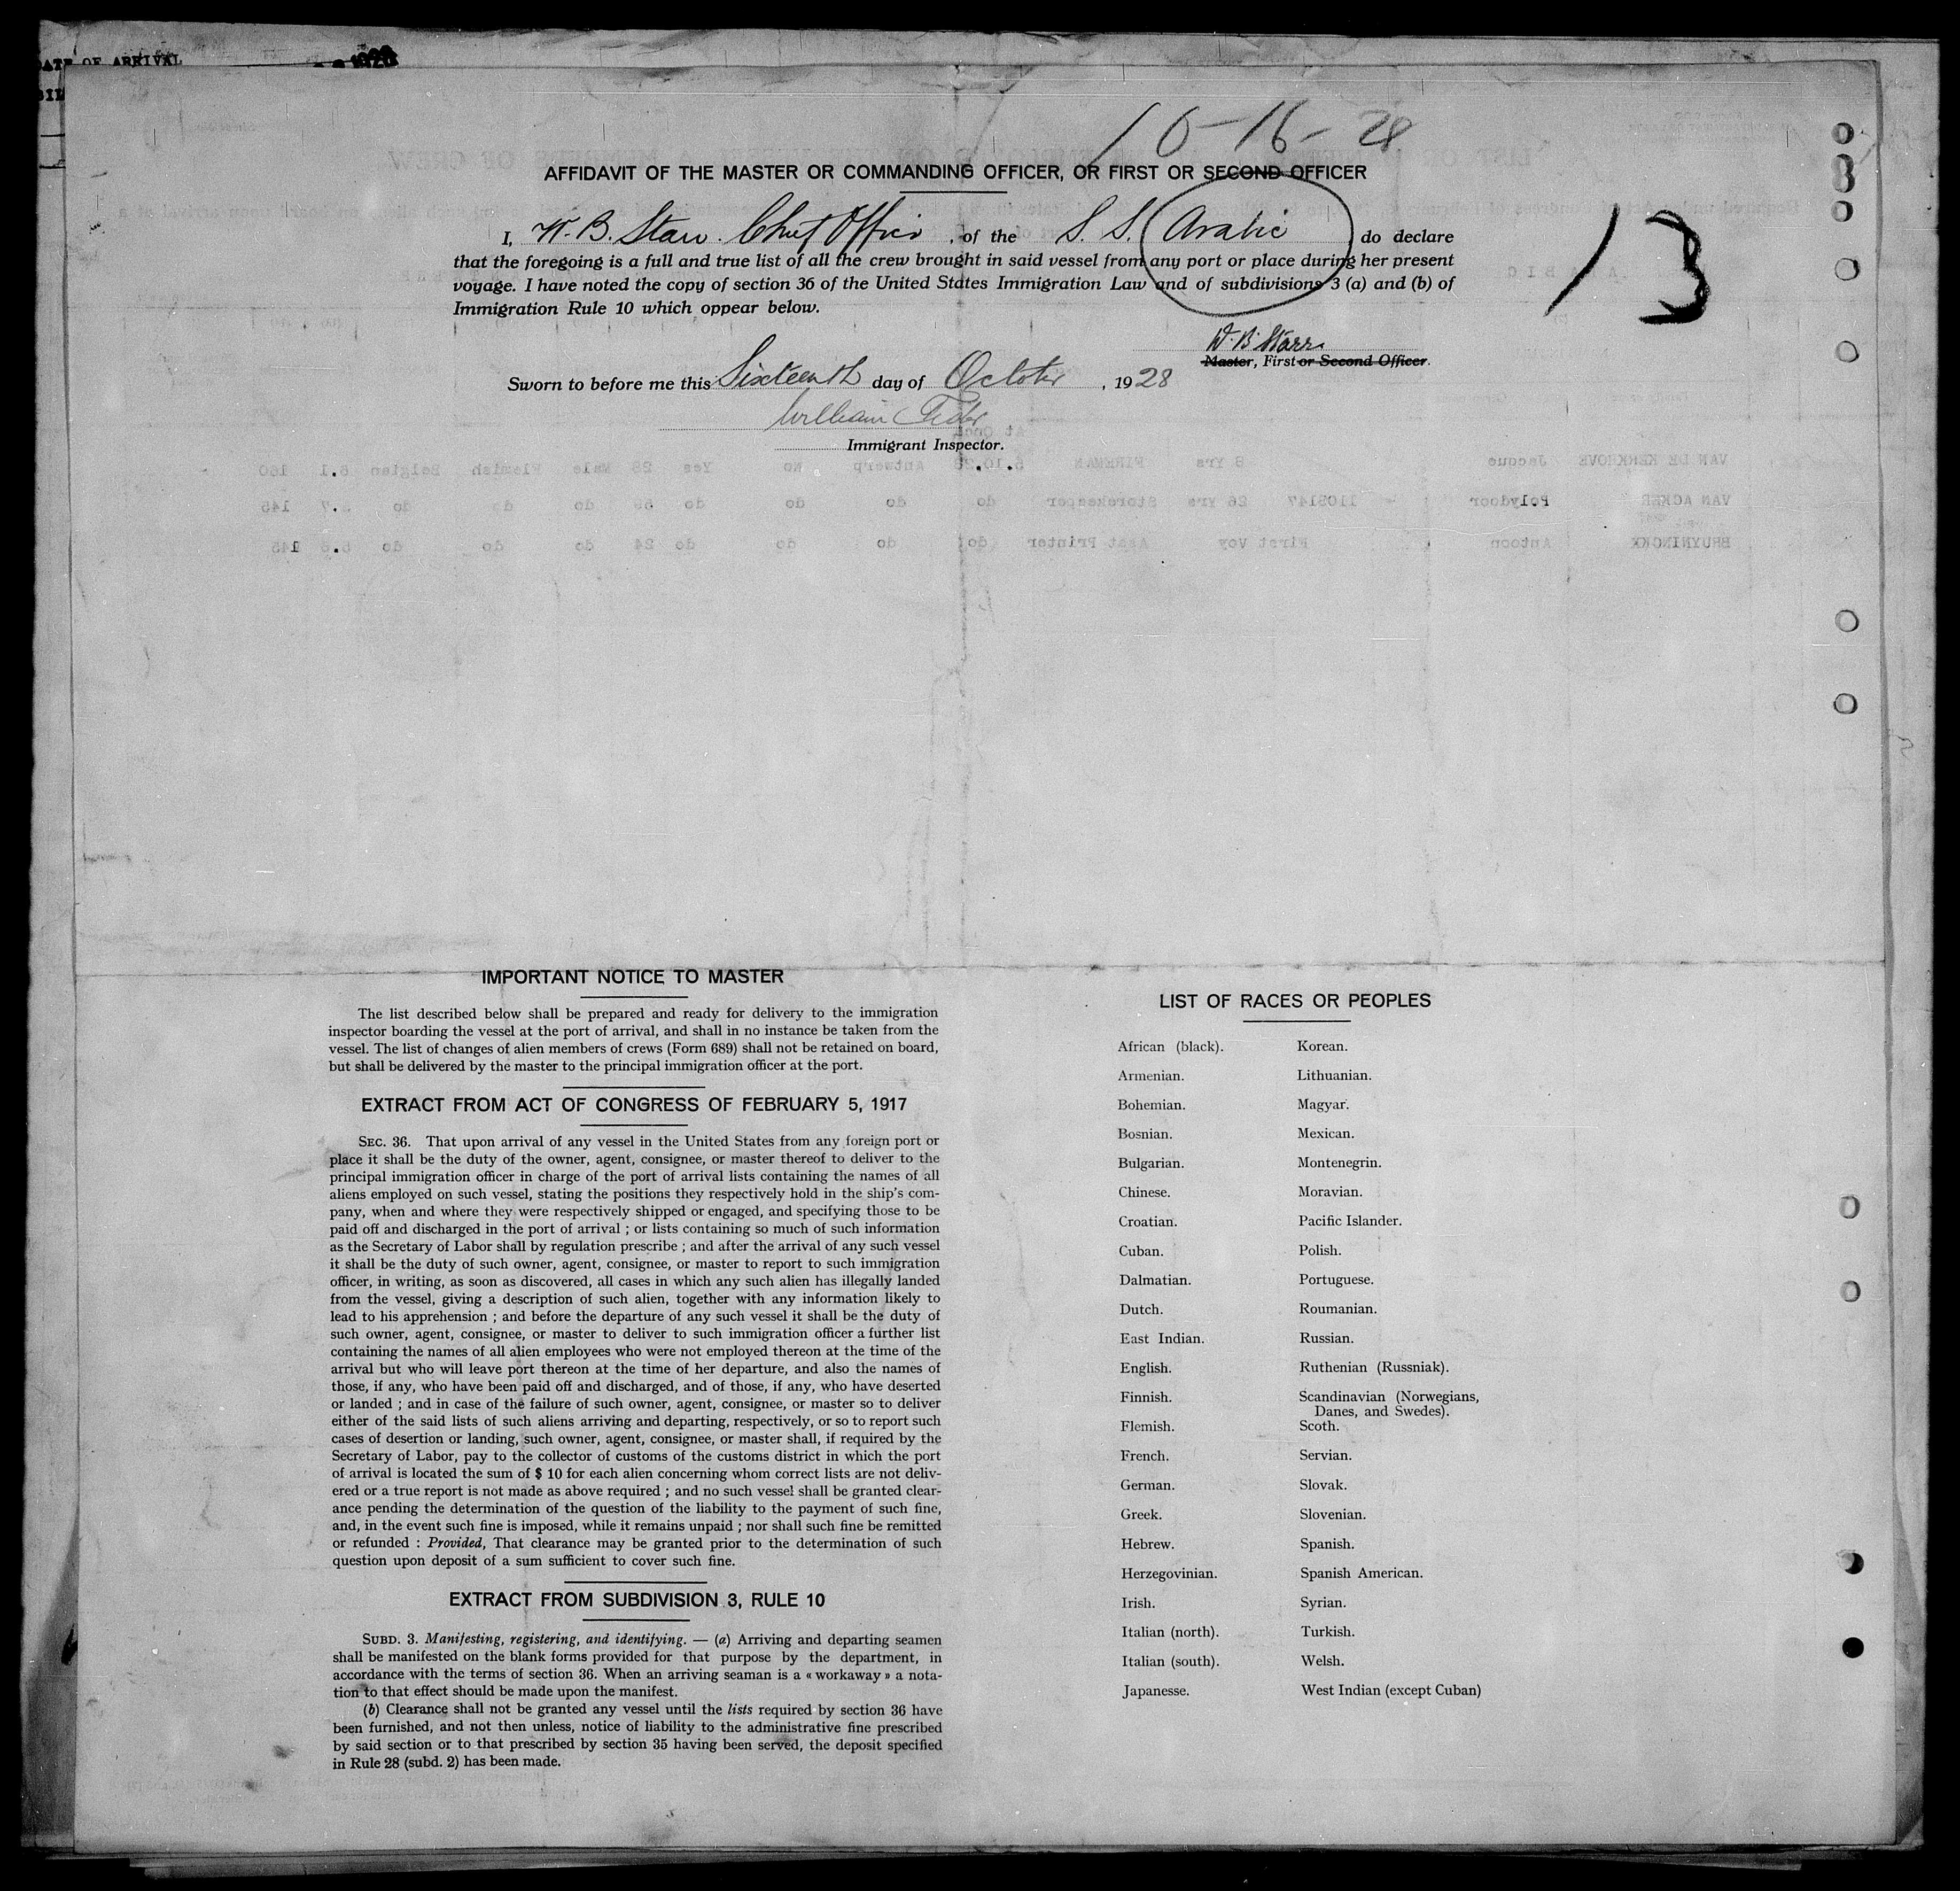 DATE OF ARRIVAL
10-16-28
AFFIDAVIT OF THE MASTER OR COMMANDING OFFICER, OR FIRST OR SECOND OFFICER
13
I, W. B. Starr. Chief Officer, of the S. S. Arabic do declare
that the foregoing is a full and true list of all the crew brought in said vessel from any port or place during her present
voyage. I have noted the copy of section 36 of the United States Immigration Law and of subdivisions 3 (a) and (b) of
Immigration Rule 10 which oppear below.
W. B. Starr
Master, First or Second Officer.
Sworn to before me this Sixteenth day of October, 1928
William
Immigrant Inspector.
VAN DE KERKHOVE Jacque 8 Yrs FIREMAN 5.10.28 Antwerp No Yes 28 Male Flemish Belgian 160
VAN ACKER Polydoor 1109147 26 yrs Storekeeper do do do do do do do 145
BRUYNINCKX Antoon First Voy Asst Printer do do do do 24 do do do 145
IMPORTANT NOTICE TO MASTER
The list described below shall be prepared and ready for delivery to the immigration
inspector boarding the vessel at the port of arrival, and shall in no instance be taken from the
vessel. The list of changes of alien members of crews (Form 689) shall not be retained on board,
but shall be delivered by the master to the principal immigration officer at the port.
EXTRACT FROM ACT OF CONGRESS OF FEBRUARY 5, 1917
SEC. 36. That upon arrival of any vessel in the United States from any foreign port or
place it shall be the duty of the owner, agent, consignee, or master thereof to deliver to the
principal immigration officer in charge of the port of arrival lists containing the names of all
aliens employed on such vessel, stating the positions they respectively hold in the ship's com-
pany, when and where they were respectively shipped or engaged, and specifying those to be
paid off and discharged in the port of arrival ; or lists containing so much of such information
as the Secretary of Labor shall by regulation prescribe ; and after the arrival of any such vessel
it shall be the duty of such owner, agent, consignee, or master to report to such immigration
officer, in writing, as soon as discovered, all cases in which any such alien has illegally landed
from the vessel, giving a description of such alien, together with any information likely to
lead to his apprehension ; and before the departure of any such vessel it shall be the duty of
such owner, agent, consignee, or master to deliver to such immigration officer a further list
containing the names of all alien employees who were not employed thereon at the time of the
arrival but who will leave port thereon at the time of her departure, and also the names of
those, if any, who have been paid off and discharged, and of those, if any, who have deserted
or landed ; and in case of the failure of such owner, agent, consignee, or master so to deliver
either of the said lists of such aliens arriving and departing, respectively, or so to report such
cases of desertion or landing, such owner, agent, consignee, or master shall, if required by the
Secretary of Labor, pay to the collector of customs of the customs district in which the port
of arrival is located the sum of $ 10 for each alien concerning whom correct lists are not deliv-
ered or a true report is not made as above required ; and no such vessel shall be granted clear-
ance pending the determination of the question of the liability to the payment of such fine,
and, in the event such fine is imposed, while it remains unpaid ; nor shall such fine be remitted
or refunded : Provided, That clearance may be granted prior to the determination of such
question upon deposit of a sum sufficient to cover such fine.
EXTRACT FROM SUBDIVISION 3, RULE 10
SUBD. 3. Manifesting, registering, and identifying. — (a) Arriving and departing seamen
shall be manifested on the blank forms provided for that purpose by the department, in
accordance with the terms of section 36. When an arriving seaman is a « workaway » a nota-
tion to that effect should be made upon the manifest.
(b) Clearance shall not be granted any vessel until the lists required by section 36 have
been furnished, and not then unless, notice of liability to the administrative fine prescribed
by said section or to that prescribed by section 35 having been served, the deposit specified
in Rule 28 (subd. 2) has been made.
LIST OF RACES OR PEOPLES
African (black). Korean.
Armenian. Lithuanian.
Bohemian. Magyar.
Bosnian. Mexican.
Bulgarian. Montenegrin.
Chinese. Moravian.
Croatian. Pacific Islander.
Cuban. Polish.
Dalmatian. Portuguese.
Dutch. Roumanian.
East Indian. Russian.
English. Ruthenian (Russniak).
Finnish. Scandinavian (Norwegians,
Danes, and Swedes).
Flemish. Scoth.
French. Servian.
German. Slovak.
Greek. Slovenian.
Hebrew. Spanish.
Herzegovinian. Spanish American.
Irish. Syrian.
Italian (north). Turkish.
Italian (south). Welsh.
Japanesse. West Indian (except Cuban)